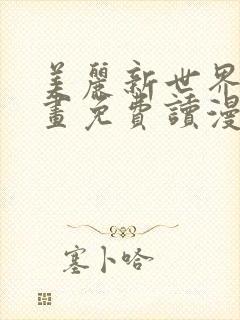 美麗新世界
畫免費讀漫
塞卜哈